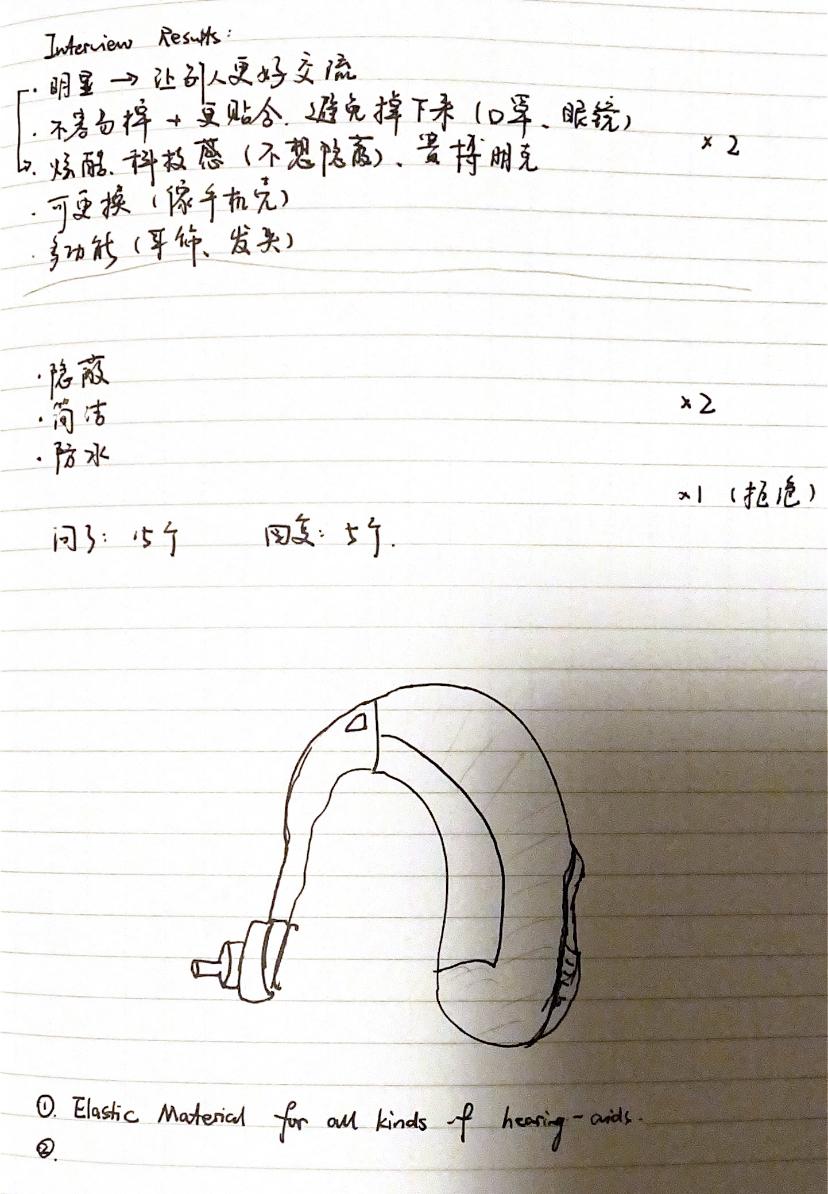 Interview Results:
· 明显 → 让别人更好交流
· 不容易掉 + 更贴合. 避免掉下来 (口罩、眼镜)
× 2
· 炫酷. 科技感 (不想隐蔽)、赛博朋克
· 可更换 (像手机壳)
· 多功能 (耳饰、发夹)
· 隐蔽
· 简洁
× 2
· 防水
×1 (拒绝)
问了: 15个 回复: 5个.
①. Elastic Material for all kinds of hearing-aids.
②.